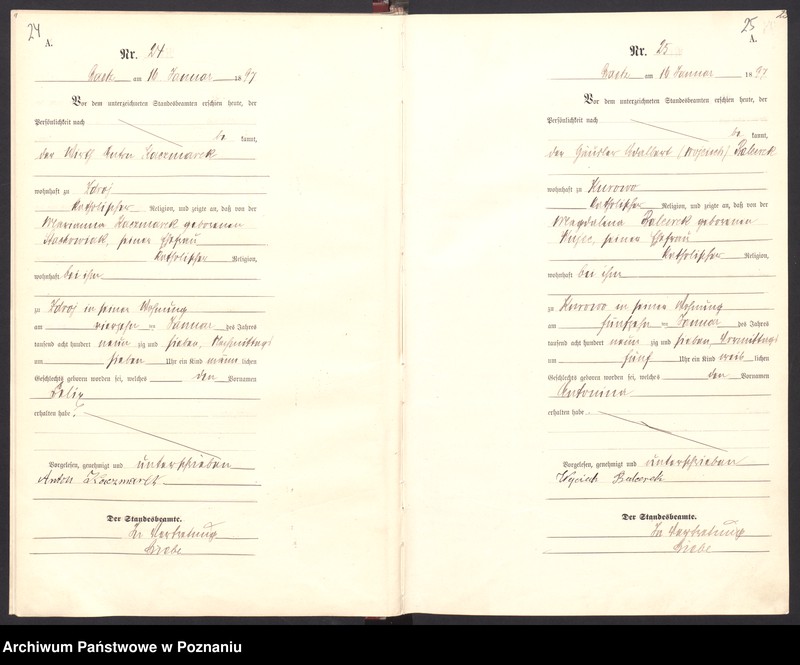 24
A.
Nr. 24
am 16 Januar 1897
Vor dem unterzeichneten Standesbeamten erschien heute, der
Persönlichkeit nach
be kannt,
der Wirth Anton Kaczmarek
wohnhaft zu Zdroj
katholischer Religion, und zeigte an, daß von der
Marianna Kaczmarek geborenen
Stachowiak, seiner Ehefrau
katholischer Religion,
wohnhaft bei ihm
zu Zdroj in seiner Wohnung
am vierzehn ten Januar des Jahres
tausend acht hundert neun zig und sieben, Nachmittags
um sieben Uhr ein Kind männ lichen
Geschlechts geboren worden sei, welches den Vornamen
Felix
erhalten habe.
Vorgelesen, genehmigt und unterschrieben
Anton Kaczmarek
Der Standesbeamte.
In Vertretung
25
A.
Nr. 25
am 16 Januar 1897
Vor dem unterzeichneten Standesbeamten erschien heute, der
Persönlichkeit nach
be kannt,
der Häusler Adalbert (Wojciech)
wohnhaft zu Kurowo
katholischer Religion, und zeigte an, daß von der
Magdalena geborenen
seiner Ehefrau
katholischer Religion,
wohnhaft bei ihm
zu Kurowo in seiner Wohnung
am fünfzehn ten Januar des Jahres
tausend acht hundert neun zig und sieben, Vormittags
um fünf Uhr ein Kind weib lichen
Geschlechts geboren worden sei, welches den Vornamen
Antonina
erhalten habe
Vorgelesen, genehmigt und unterschrieben
Der Standesbeamte.
In Vertretung
Archiwum Państwowe w Poznaniu